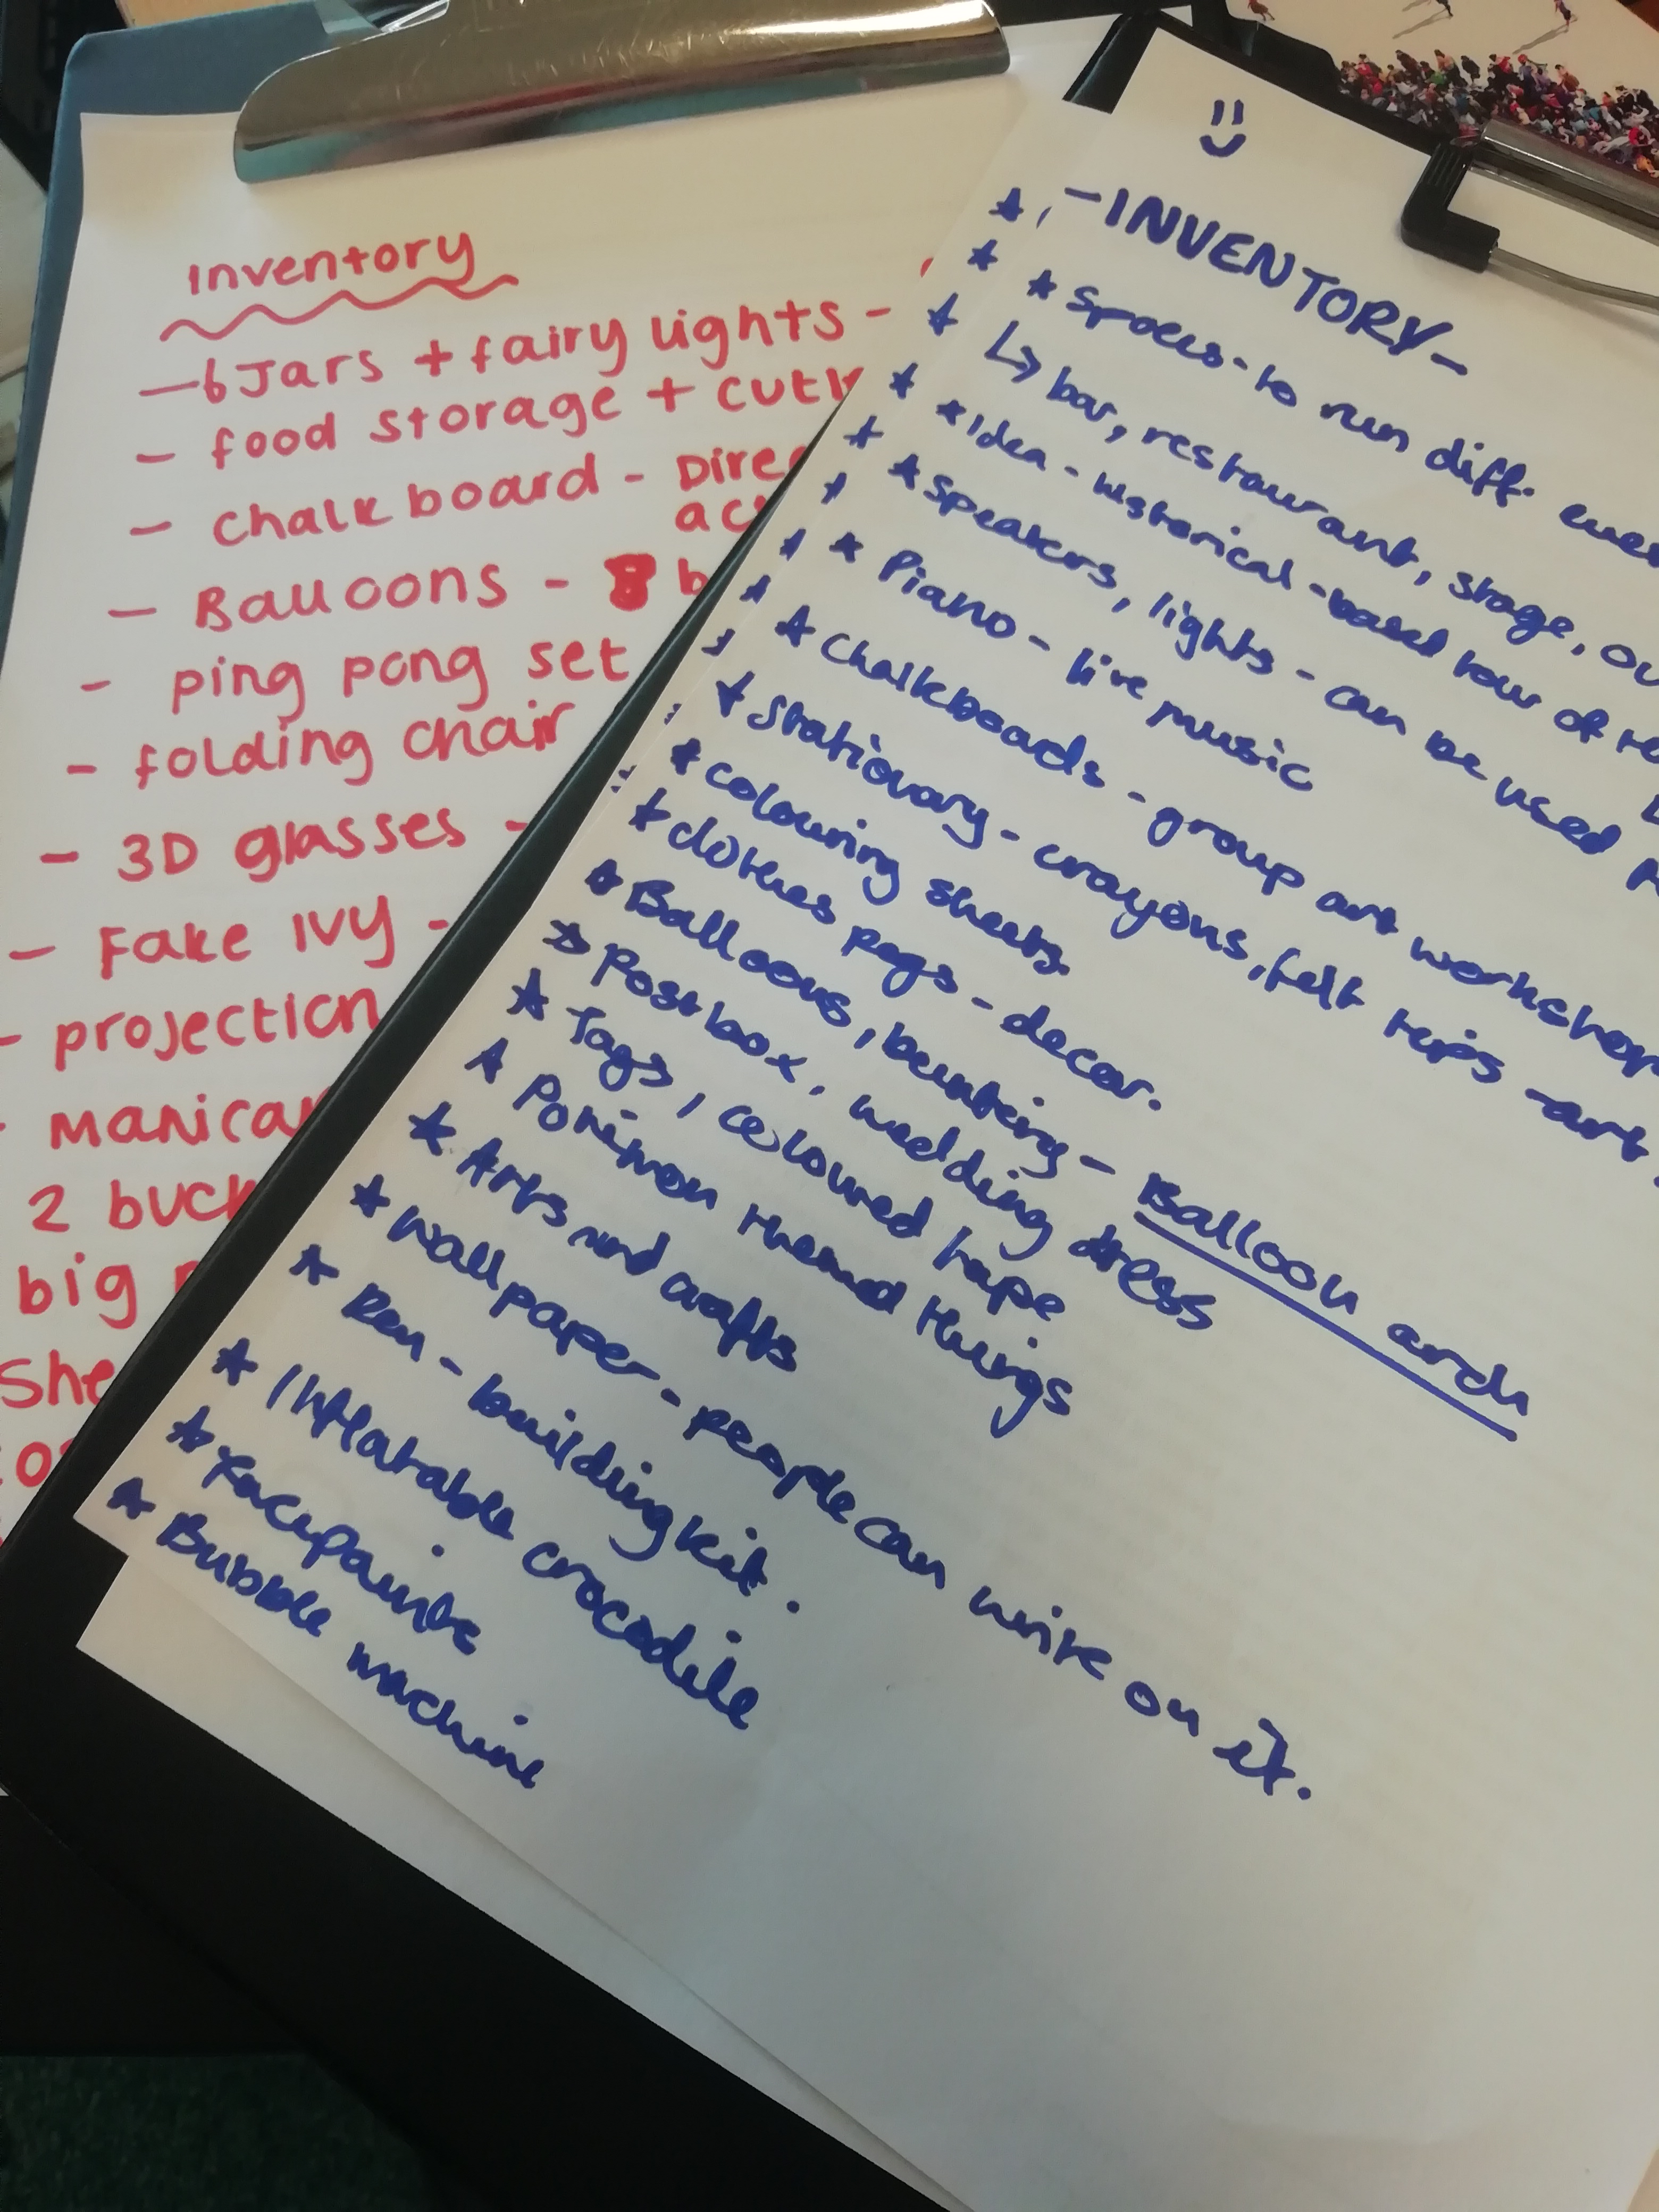 Inventory
— 6 Jars + fairy lights -
- food storage +
- Chalk board -
- Balloons - 8
- ping pong set
- folding chair
- 3D glasses -
- Fake Ivy -
- projection
2
big
-INVENTORY-
* Spaces - to run diff.
↳ bar, restaurant, stage,
* Idea - historical - based row of
* Speakers, lights - can be used
* Piano - live music
* Chalkboads - group art
* Stationary - crayons, felt tips - art
* colouring sheets
* clothes pegs - decor.
* Balloons, bunting - Balloon arch
* Postbox, wedding dress
* Tags, coloured tape
* Pokémon themed things
* Arts and crafts
* Wallpaper - people can write on it.
* Ren - building kit.
* Inflatable crocodile
* Facepaints
* Bubble machine